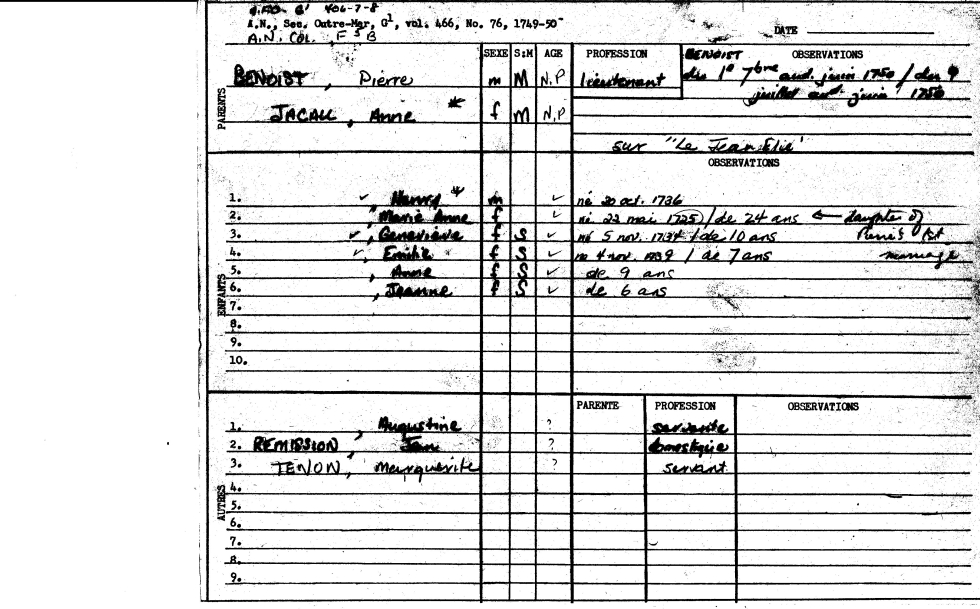 G¹ 406-7-8
A.N., Sec. Outre-Mer, G¹, vol. 466, No. 76, 1749-50
A.N. Col. F⁵B
DATE
SEXE S:M AGE PROFESSION BENOIST OBSERVATIONS
PARENTS
BENOIST, Pierre m M N.P lieutenant du 1º 7bre aud. juin 1750 / du 9
juillet aud. juin 1750
JACALL, Anne * f M N.P
sur "Le Jean Elie"
OBSERVATIONS
ENFANTS
1. ✓ Henry * m ✓ né 20 oct. 1736
2. , Marie Anne f ✓ né 22 mai 1725 / de 24 ans ← daughter of
3. ✓, Geneviève f S ✓ né 5 nov. 1734 / de 10 ans Pierre's 1st
4. ✓, Emilie f S ✓ né 4 nov. 1739 / de 7 ans marriage
5. , Anne f S ✓ de 9 ans
6. , Jeanne f S ✓ de 6 ans
7.
8.
9.
10.
PARENTE PROFESSION OBSERVATIONS
AUTRES
1. , Augustine ? servante
2. REMISSION, Jean ? domestique
3. TENON, Marguerite ? servant
4.
5.
6.
7.
8.
9.